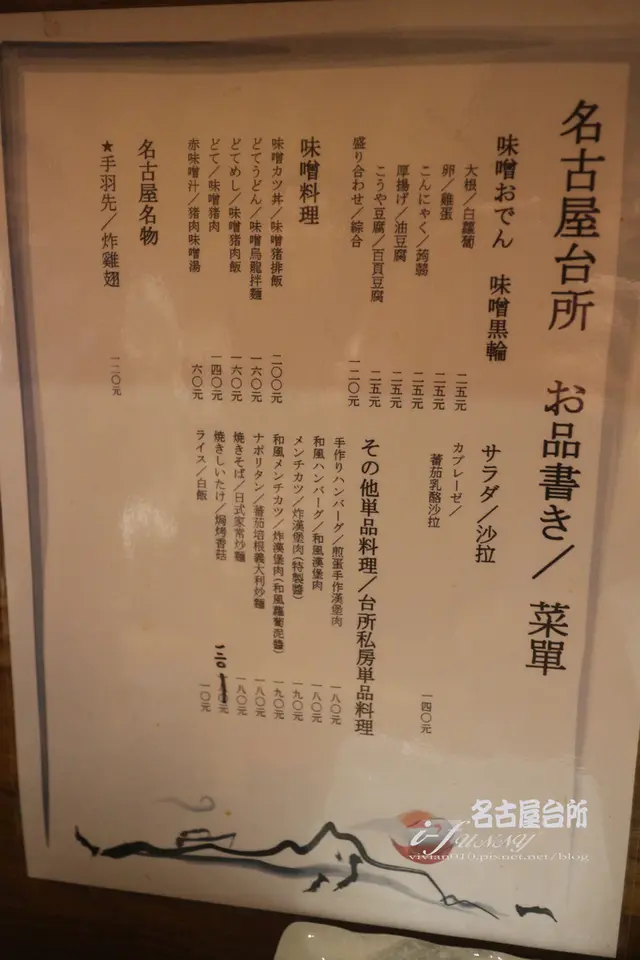 名古屋台所 お品書き／菜單
味噌おでん 味噌黒輪
大根／白蘿蔔 二五元
卵／雞蛋 二五元
こんにゃく／蒟蒻 二五元
厚揚げ／油豆腐 二五元
こうや豆腐／百頁豆腐 二五元
盛り合わせ／綜合 一二〇元
味噌料理
味噌カツ丼／味噌猪排飯 二〇〇元
どてうどん／味噌烏龍拌麵 一六〇元
どてめし／味噌猪肉飯 一六〇元
どて／味噌猪肉 一四〇元
赤味噌汁／猪肉味噌湯 六〇元
名古屋名物
★手羽先／炸雞翅 一二〇元
サラダ／沙拉
カプレーゼ／
蕃茄乳酪沙拉 一四〇元
その他単品料理／台所私房単品料理
手作りハンバーグ／煎蛋手作漢堡肉 一八〇元
和風ハンバーグ／和風漢堡肉 一八〇元
メンチカツ／炸漢堡肉(特製醬) 一九〇元
和風メンチカツ／炸漢堡肉(和風蘿蔔泥醬) 一九〇元
ナポリタン／蕃茄培根義大利炒麵 一八〇元
焼きそば／日式家常炒麵 一八〇元
焼きしいたけ／焗烤香菇 一三〇元
ライス／白飯 一〇元
名古屋台所
i-Junny
vivian010.pixnet.net/blog